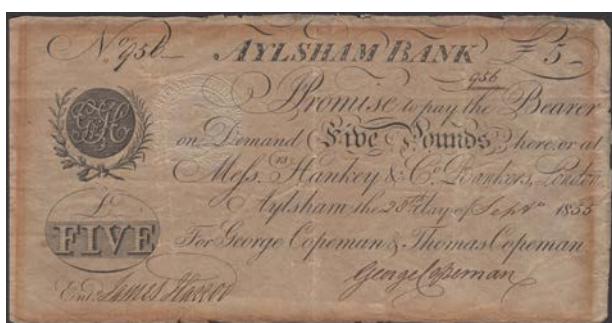 No. 956 AYLSHAM BANK £ 5
956
I Promise to pay the Bearer
on Demand Five Pounds here, or at
Messrs. Hankey & Co. Bankers, London
Aylsham the 28th day of Septr 1855
£
FIVE
For George Copeman & Thomas Copeman
Entd. James George Copeman